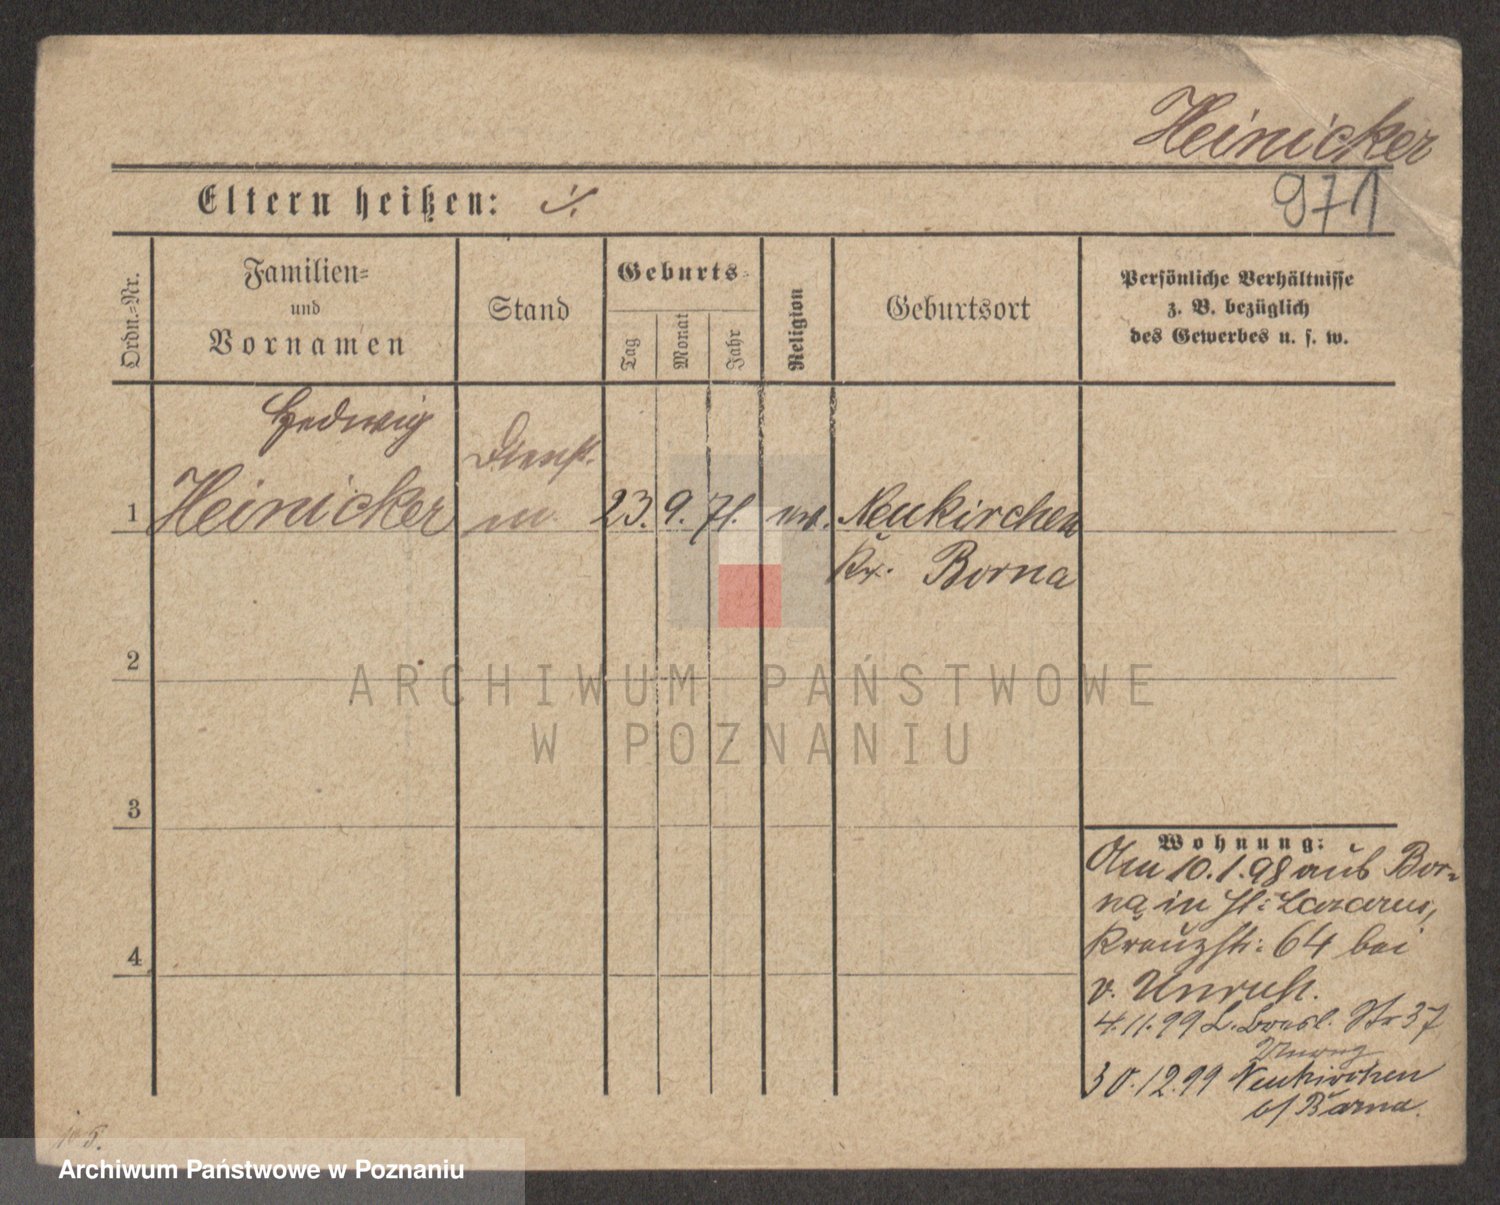 Heinicker
971
Eltern heißen: ./.
Ordn.=Nr.
Familien=
und
Vornamen
Stand
Geburts=
Tag
Monat
Jahr
Religion
Geburtsort
Persönliche Verhältnisse
z. B. bezüglich
des Gewerbes u. s. w.
Hedwig
Dienst.
1 Heinicker m. 23. 9. 71. ev. Neukirchen
Kr. Borna
2
3
4
Wohnung:
Am 10.1.98 aus Bor=
na in St: Lazarus,
Kreuzstr: 64 bei
v. Unruh.
4.11.99 Str 37
30.12.99 Neukirchen
b/ Borna.
ARCHIWUM PAŃSTWOWE
W POZNANIU
Archiwum Państwowe w Poznaniu